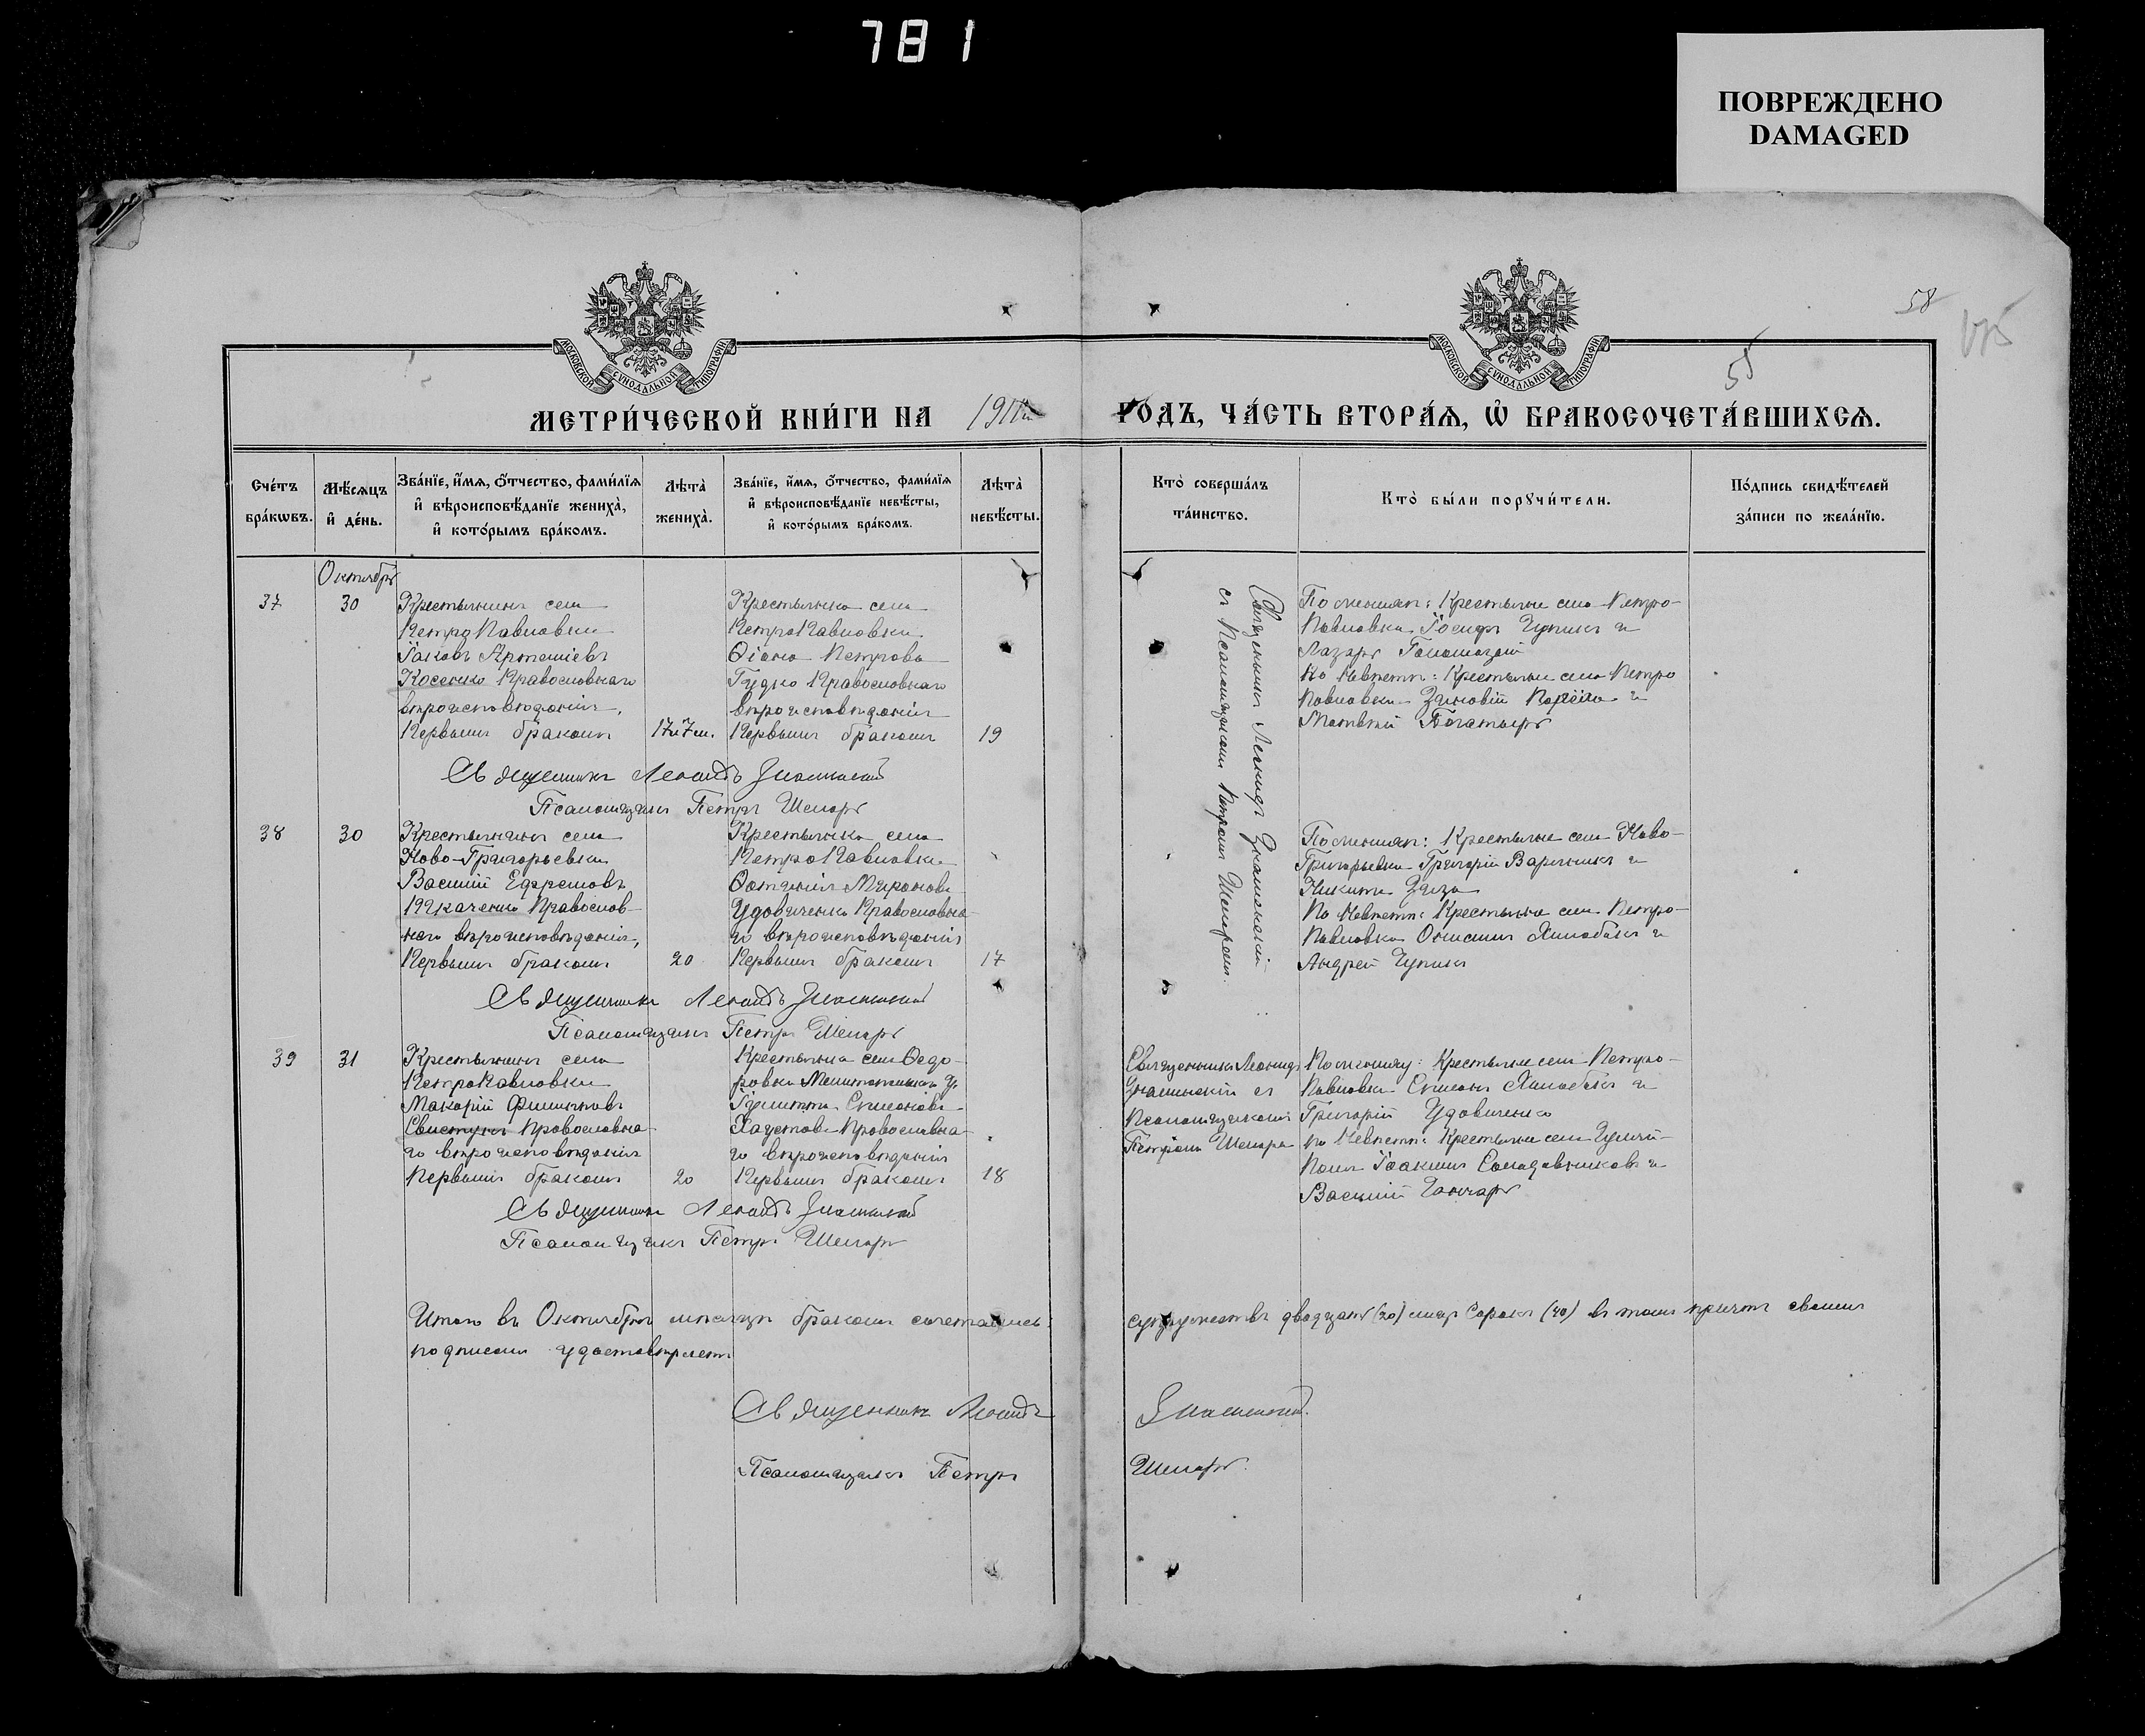 781
ПОВРЕЖДЕНО
DAMAGED
58
55
МОСКОВСКОЙ СѴНОДАЛЬНОЙ ТИПОГРАФІИ
МОСКОВСКОЙ СѴНОДАЛЬНОЙ ТИПОГРАФІИ
МЕТРИ́ЧЕСКОЙ КНИ́ГИ НА 1911й
ГОДЪ, ЧА́СТЬ ВТОРА́Я, Ѡ БРАКОСОЧЕТА́ВШИХСЯ.
Сче́тъ бра́кωвъ.
Мѣ́сяцъ и де́нь.
Зва́нїе, и́мя, о́тчество, фами́лїя и вѣроисповѣ́данїе жениха̀, и кото́рымъ бра́комъ.
Лѣта̀ жениха̀.
Зва́нїе, и́мя, о́тчество, фами́лїя и вѣроисповѣ́данїе невѣ́сты, и кото́рымъ бра́комъ.
Лѣта̀ невѣ́сты.
Кто̀ соверша́лъ та́инство.
Кто̀ бы́ли порꙋчи́тели.
По́дпись свидѣ́телей за́писи по жела́нїю.
Октябрь
37
30
Крестьянинъ села
ПетроПавловки
Іаковъ Артеміевъ
Косенко Православнаго
вѣроисповѣданія,
Первымъ бракомъ
17 и 7 м.
Крестьянка села
ПетроПавловки
Ѳіана Петрова
Гудко Православнаго
вѣроисповѣданія
Первымъ бракомъ
19
Священникъ Леонидъ Знаменскій
съ Псаломщикомъ Петромъ Шепаремъ
По женихѣ: Крестьяне села Петро-
Павловки Іосифъ Чуприкъ и
Лазарь
По Невѣстѣ: Крестьяне села Петро
Павловки Зиновій и
Матвѣй Богатырь
Священникъ Леонидъ Знаменскій
Псаломщикъ Петръ Шепарь
38
30
Крестьянинъ села
Ново-Григорьевки
Василій Ефремовъ
Ткаченко Православ-
наго вѣроисповѣданія,
Первымъ бракомъ
20
Крестьянка села
ПетроПавловки
Миронова
Удовиченко Православна-
го вѣроисповѣданія
Первымъ бракомъ
17
По женихѣ: Крестьяне села Ново-
Григорьевки Григорій и
Никита
По Невѣстѣ: Крестьяне села Петро-
Павловки Онисимъ и
Андрей
Священникъ Леонидъ Знаменскій
Псаломщикъ Петръ Шепарь
39
31
Крестьянинъ села
ПетроПавловки
Макарій Филиповъ
Свистунъ Православна-
го вѣроисповѣданія
Первымъ бракомъ
20
Крестьянка села Ѳедо-
ровки Мелитопольскаго у.
Семенова
Хаустова Православна-
го вѣроисповѣданія
Первымъ бракомъ
18
Священникъ Леонидъ
Знаменскій съ
Псаломщикомъ
Петромъ Шепаремъ
По жениху: Крестьяне села Петро-
Павловки Семенъ и
Григорій Удовиченко
по Невѣстѣ: Крестьяне села Гуляй-
Поля Іоакимъ и
Василій Гончаръ
Священникъ Леонидъ Знаменскій
Псаломщикъ Петръ Шепарь
Итого въ Октябрѣ мѣсяцѣ бракомъ сочетались
супружествъ двадцать (20) лицъ Сорокъ (40) въ томъ причтъ своимъ
подписомъ удостовѣряетъ
Священникъ Леонидъ Знаменскій.
Псаломщикъ Петръ Шепарь.